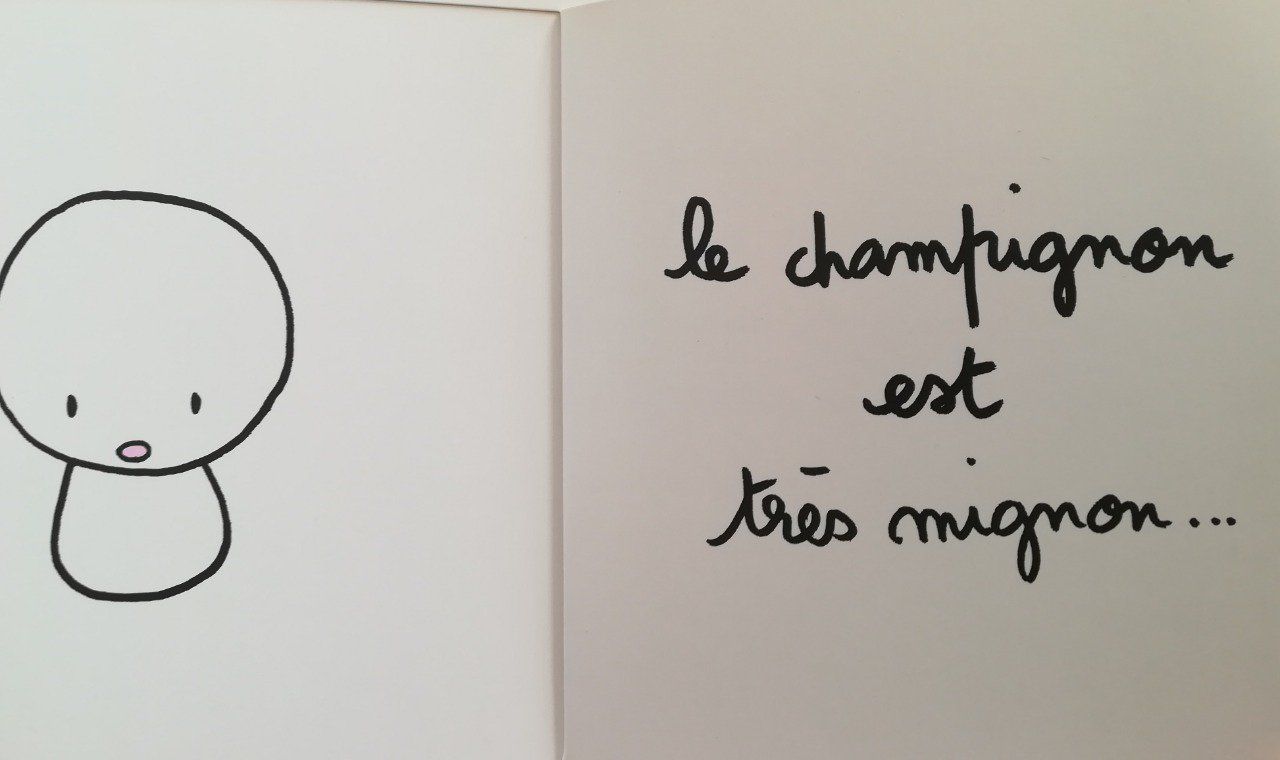 le champignon
est
très mignon...